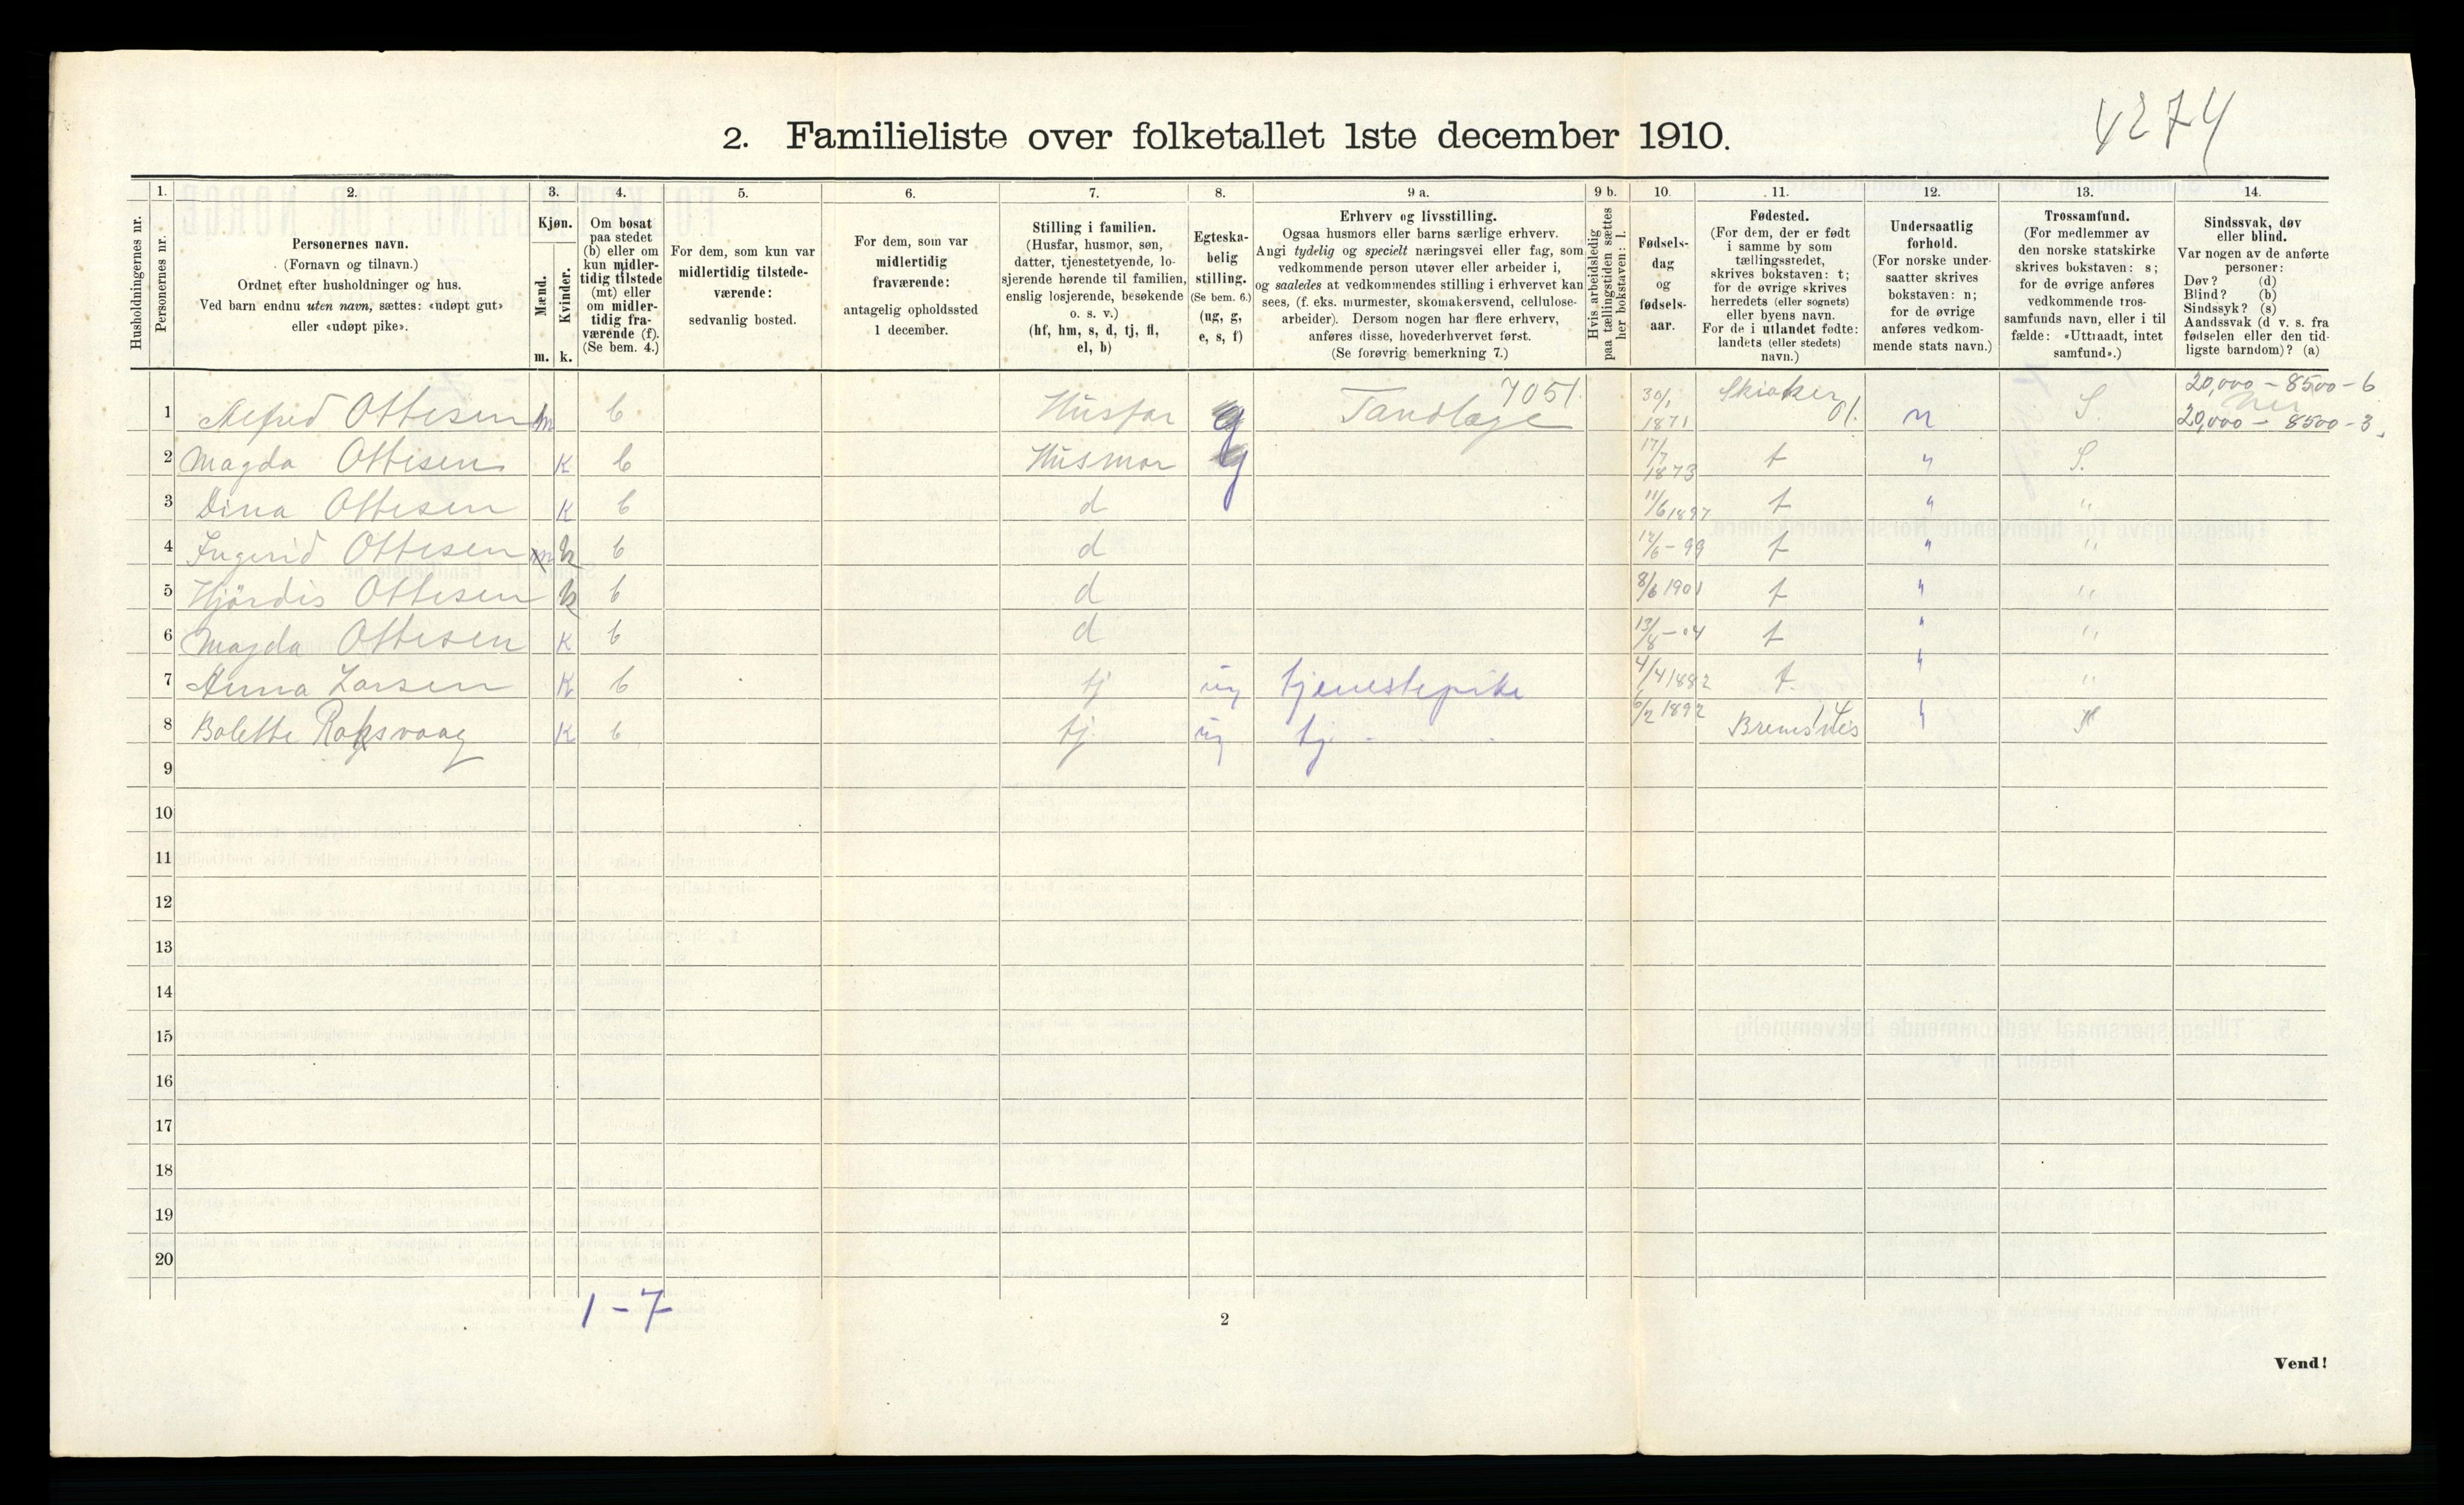 4274
2. Familieliste over folketallet 1ste december 1910.
1. 2. 3. 4. 5. 6. 7. 8. 9 a. 9 b. 10. 11. 12. 13. 14.
Husholdningernes nr.
Personernes nr.
Personernes navn.
(Fornavn og tilnavn.)
Ordnet efter husholdninger og hus.
Ved barn endnu uten navn, sættes: «udøpt gut»
eller «udøpt pike».
Kjøn.
Mænd.
Kvinder.
m. k.
Om bosat
paa stedet
(b) eller om
kun midler-
tidig tilstede
(mt) eller
om midler-
tidig fra-
værende (f).
(Se bem. 4.)
For dem, som kun var
midlertidig tilstede-
værende:
sedvanlig bosted.
For dem, som var
midlertidig
fraværende:
antagelig opholdssted
1 december.
Stilling i familien.
(Husfar, husmor, søn,
datter, tjenestetyende, lo-
sjerende hørende til familien,
enslig losjerende, besøkende
o. s. v.)
(hf, hm, s, d, tj, fl,
el, b)
Egteska-
belig
stilling.
(Se bem. 6.)
(ug, g,
e, s, f)
Erhverv og livsstilling.
Ogsaa husmors eller barns særlige erhverv.
Angi tydelig og specielt næringsvei eller fag, som
vedkommende person utøver eller arbeider i,
og saaledes at vedkommendes stilling i erhvervet kan
sees, (f. eks. murmester, skomakersvend, cellulose-
arbeider). Dersom nogen har flere erhverv,
anføres disse, hovederhvervet først.
(Se forøvrig bemerkning 7.)
Hvis arbeidsledig
paa tællingstiden sættes
her bokstaven: l.
Fødsels-
dag
og
fødsels-
aar.
Fødested.
(For dem, der er født
i samme by som
tællingsstedet,
skrives bokstaven: t;
for de øvrige skrives
herredets (eller sognets)
eller byens navn.
For de i utlandet fødte:
landets (eller stedets)
navn.)
Undersaatlig
forhold.
(For norske under-
saatter skrives
bokstaven: n;
for de øvrige
anføres vedkom-
mende stats navn.)
Trossamfund.
(For medlemmer av
den norske statskirke
skrives bokstaven: s;
for de øvrige anføres
vedkommende tros-
samfunds navn, eller i til
fælde: «Uttraadt, intet
samfund».)
Sindssvak, døv
eller blind.
Var nogen av de anførte
personer:
Døv? (d)
Blind? (b)
Sindssyk? (s)
Aandssvak (d v. s. fra
fødselen eller den tid-
ligste barndom)? (a)
7051. 20,000 - 8500 - 6
1 Alfred Ottesen m b Husfar g Tandlæge 30/1 1871 Skiaker 01. n S. 20,000 - 8500 - 3
2 Magda Ottesen K b Husmor g 17/7 1873 t " S.
3 Dina Ottesen K b d 11/6 1897 t " "
4 Ingerid Ottesen m k b d 12/6-99 t " "
5 Hjördis Ottesen k b d 8/6 1901 t " "
6 Magda Ottesen K b d 13/8-04 t " "
7 Anna Larsen K b tj ug tjenestepike 4/4 1882 t. " "
8 Bolette Roksvaag K b tj. ug tj - - 6/2 1892 Bremsnes "
9
10
11
12
13
14
15
16
17
18
19
20
1-7
2
Vend!